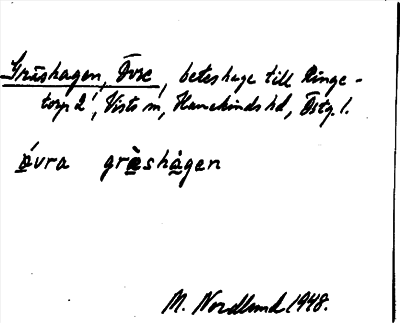 Gräshagen, Övre, beteshage till Ringe-
torp 2¹, Vists sn, Hanekinds hd, Östg. l.
ó̲vra grä̀shå̲gen
M. Nordlund 1948.